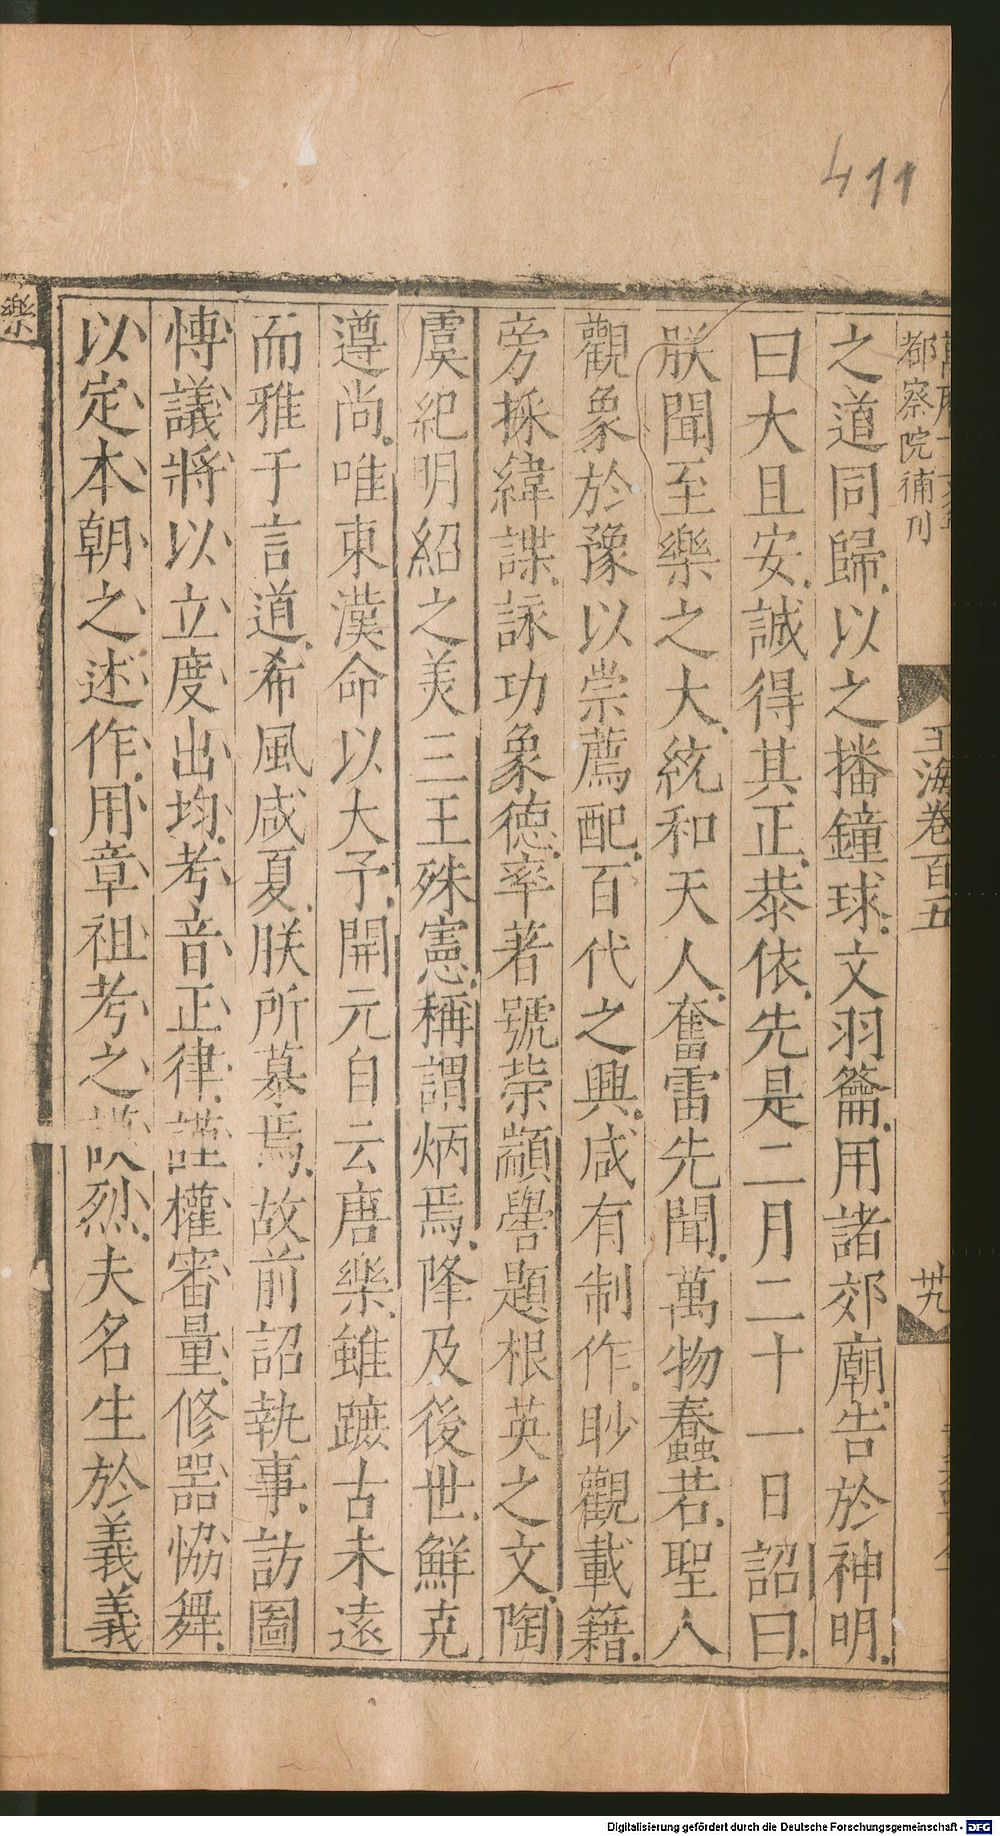 411
都察院補刊
玉海卷百五
廿九
之道同歸以之播鐘球文羽籥用諸郊廟告於神明
曰大且安誠得其正恭依先是二月二十一日詔曰
朕聞至樂之大統和天人奮雷先聞萬物蠢若聖人
觀象於豫以崇薦配百代之興咸有制作眇觀載籍
旁採緯諜詠功象德率著號榮顓嚳題根英之文陶
虞紀明紹之美三王殊憲稱謂炳焉降及後世鮮克
遵尚唯東漢命以大予開元自云唐樂雖蹠古未遠
而雅于言道希風咸夏朕所慕焉故前詔執事訪圖
慱議將以立度出均考音正律謹權審量修器協舞
以定本朝之述作用章祖考之烈夫名生於義義
樂
Digitalisierung gefördert durch die Deutsche Forschungsgemeinschaft - DFG